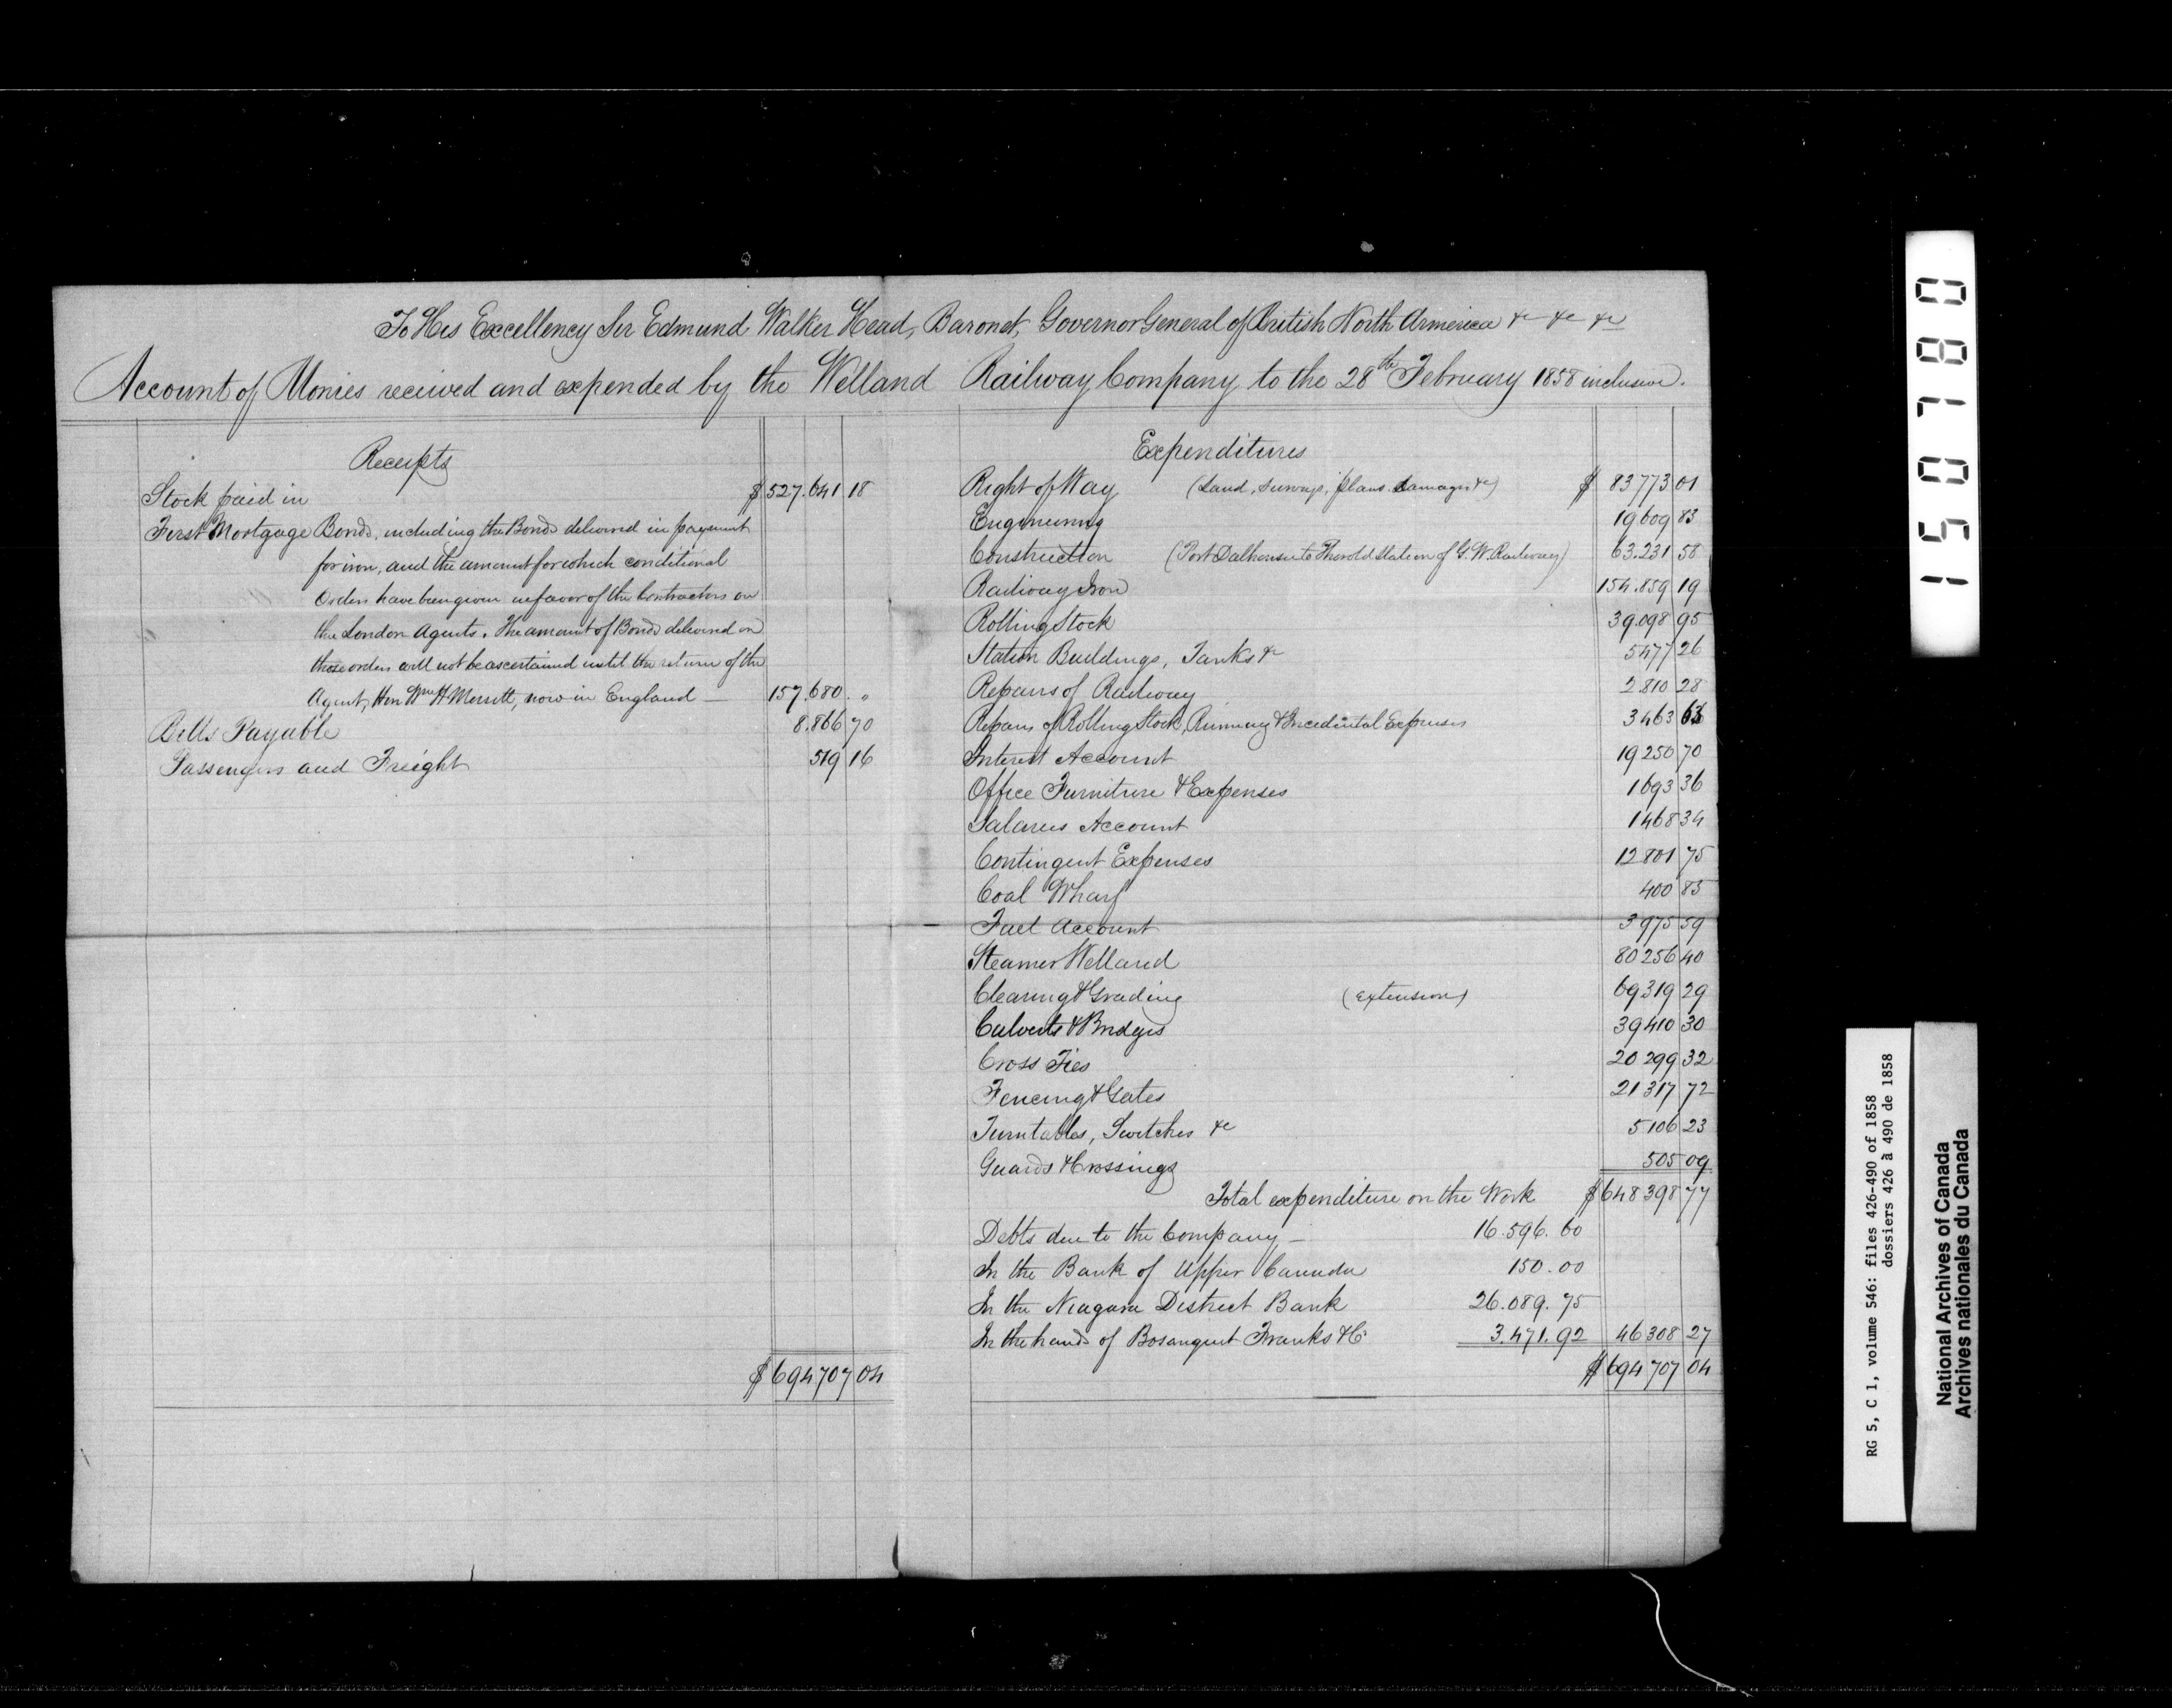 To His Excellency Sir Edmund Walker Head, Baronet, Governor General of British North America &c &c &c
Account of Monies received and expended by the Welland Railway Company to the 28th February 1858 inclusive.
Receipts
Stock paid in $527.641 18
First Mortgage Bonds, including the Bonds delivered in payment
for iron, and the amount for which conditional
Orders have been given in favor of the Contractors on
the London Agents. The amount of Bonds delivered on
these orders will not be ascertained until the return of the
Agent, Hon Wm H Merritt, now in England — 157.680. "
Bills Payable 8.866 70
Passengers and Freight 519 16
$694707 04
Expenditures
Right of Way (Land, surveys, plans, damages &c) $ 83773 01
Engineering 19609 83
Construction (Port Dalhousie to Thorold Station of G. W. Railway) 63.231 58
Railway Iron 154.859 19
Rolling Stock 39.098 95
Station Buildings, Tanks &c 5477 26
Repairs of Railway 2.810 28
Repairs of Rolling Stock, Running & Incidental Expenses 3463 63
Interest Account 19250 70
Office Furniture & Expenses 1693 36
Salaries Account 1468 34
Contingent Expenses 12801 75
Coal Wharf 400 85
Fuel Account 3975 59
Steamer Welland 80256 40
Clearing & Grading (extension) 69319 29
Culverts & Bridges 39410 30
Cross Ties 20299 32
Fencing & Gates 21317 72
Turntables, Switches &c 5106 23
Guards & Crossings 505 09
Total expenditure on the Work $648398 77
Debts due to the Company — 16.596.60
In the Bank of Upper Canada 150.00
In the Niagara District Bank 26.089.75
In the hands of Bosanquet Franks & Co 3.471.92 46308 27
$694707 04
150780
RG 5, C 1, volume 546: files 426-490 of 1858
dossiers 426 à 490 de 1858
National Archives of Canada
Archives nationales du Canada